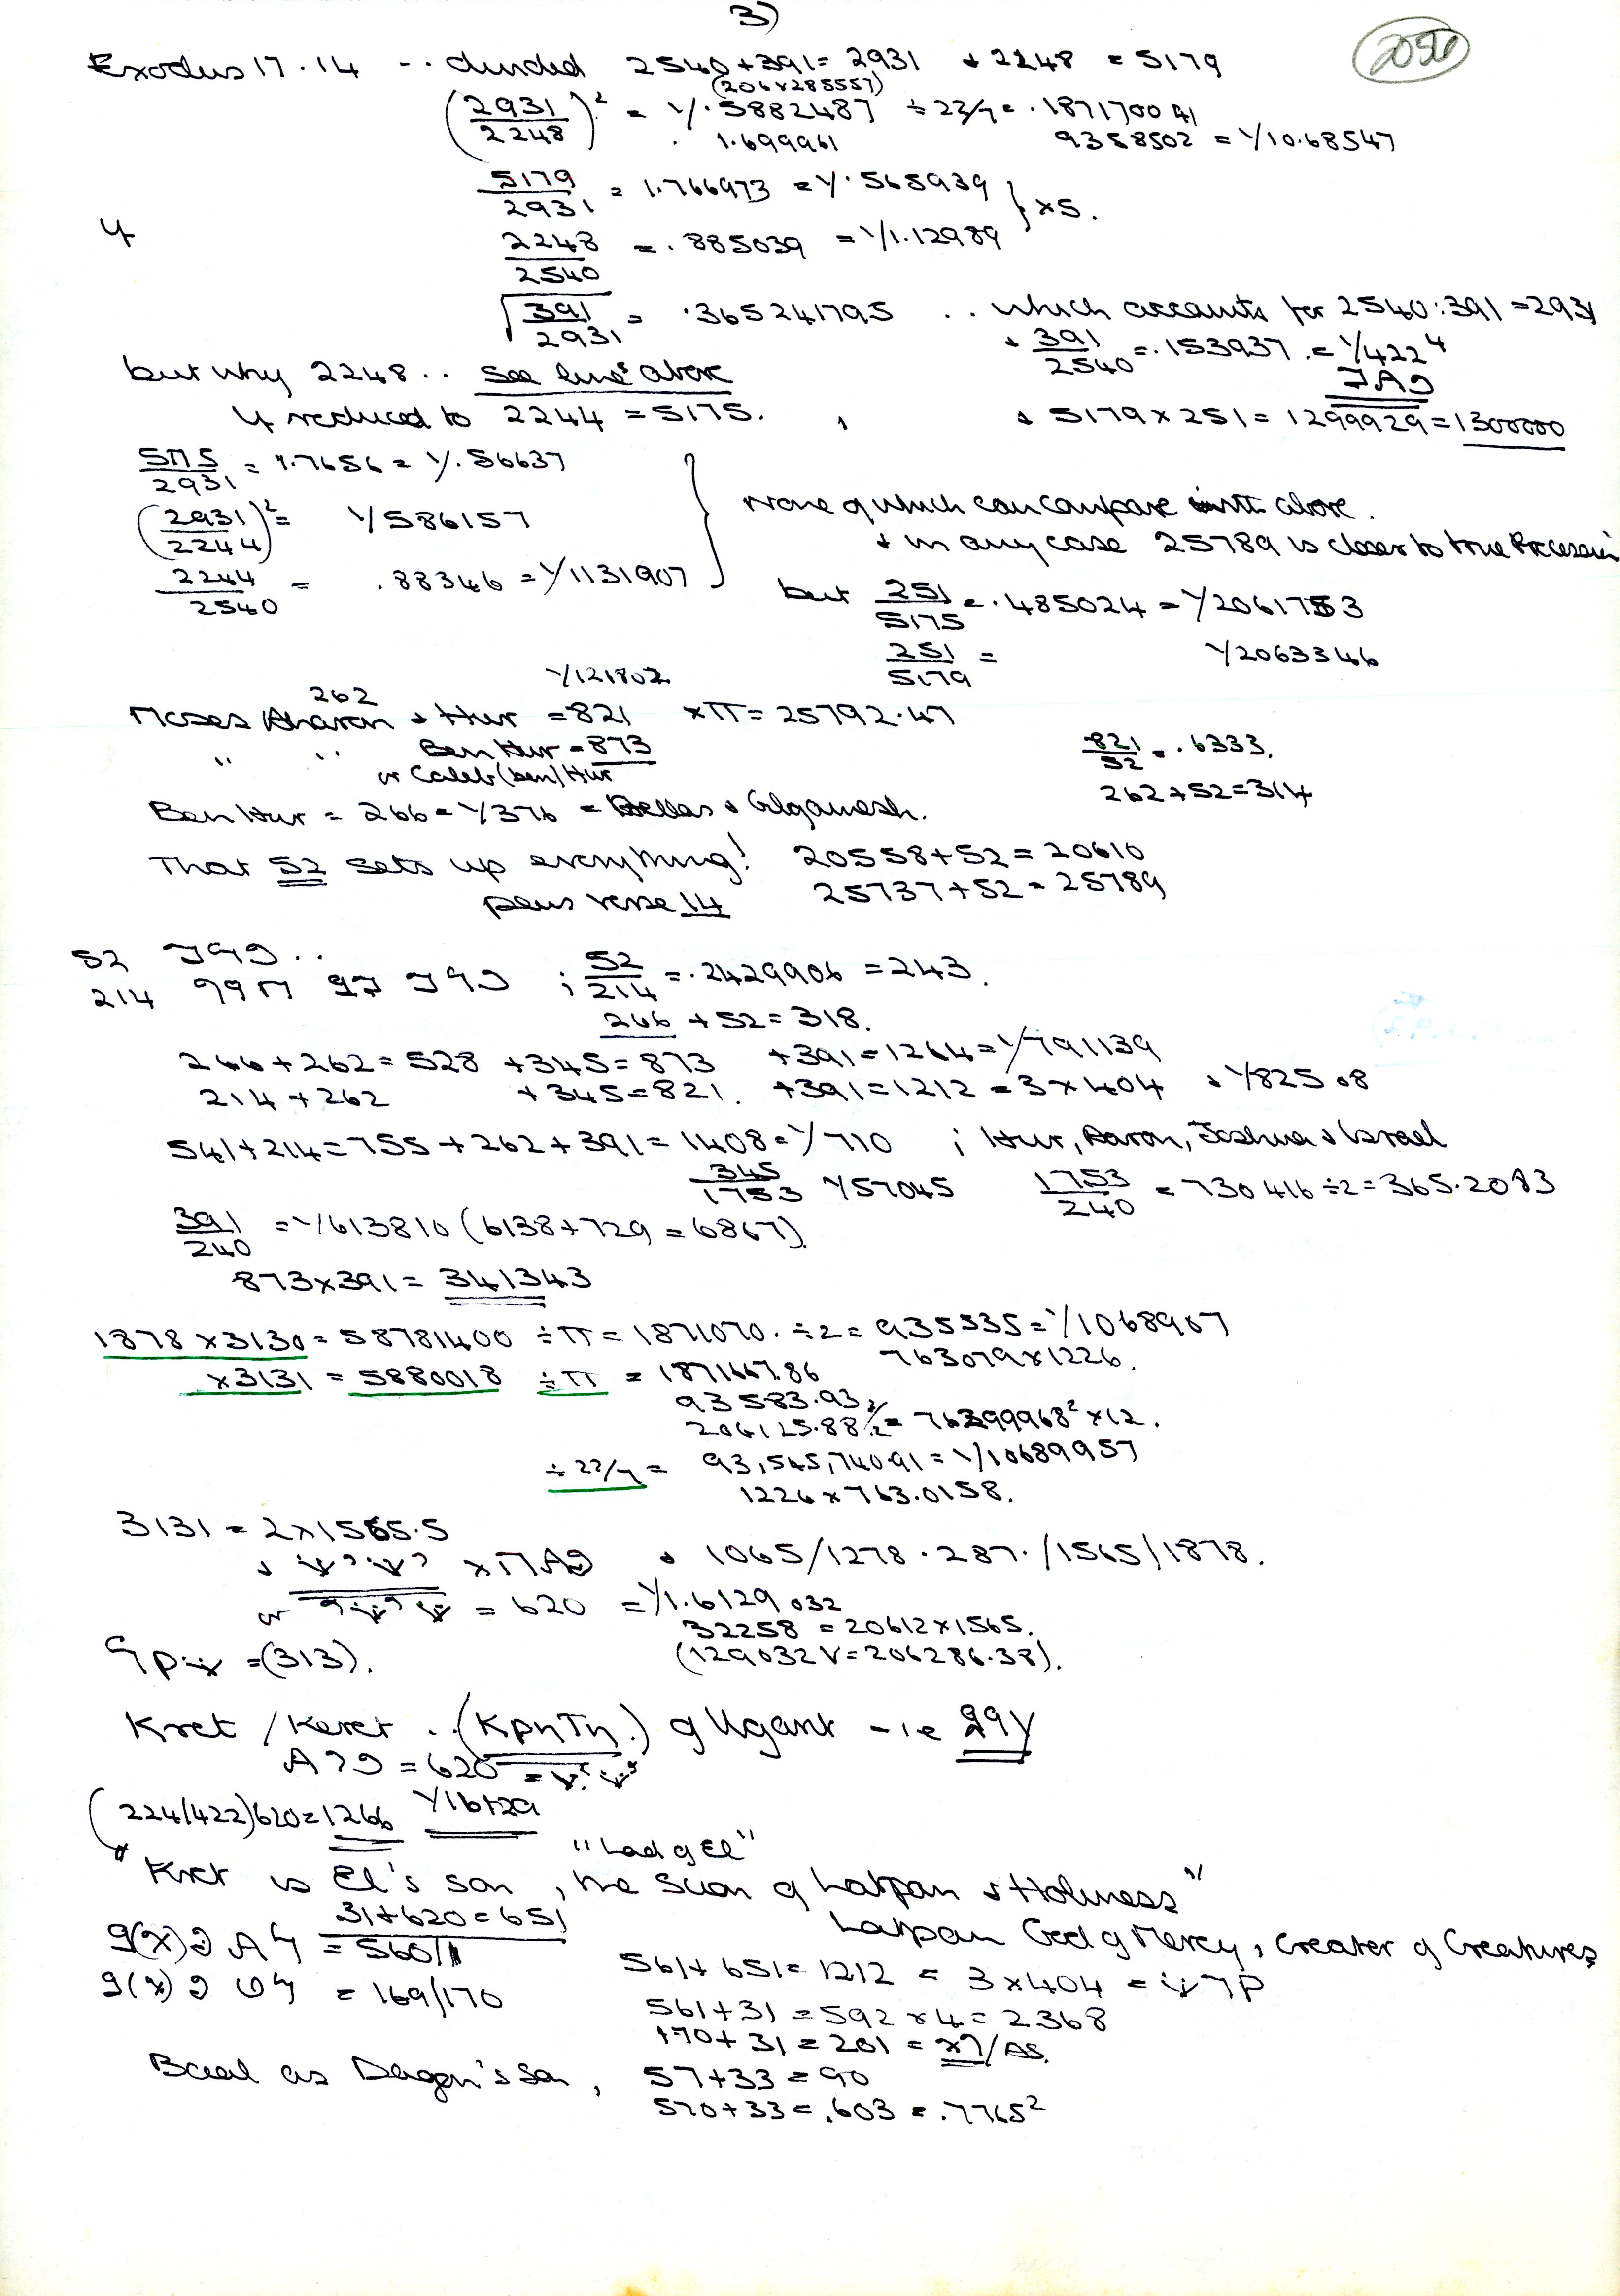 3)
2056
Exodus 17.14 .. divided 2540+391= 2931 + 2248 = 5179
(206×285557)
(2931/2248)² = 1/.5882487 ÷ 22/7 = .18717004
1.699961 9358502 = 1/10.68547
5179/2931 = 1.766973 = 1/.565939 } ×5.
if 2248/2540 = .885039 = 1/1.12989
√391/2931 = .365241795 .. which accounts for 2540:391 = 2931
+ 391/2540 = .153937 = 1/422⁴
but why 2248.. see lines above
if reduced to 2244 = 5175. + 5179 × 251 = 1299929 = 1300000
5175/2931 = 1.7656 = 1/.56637
(2931/2244)² = 1/586157
None of which can compare with above.
+ in any case 25789 is closer to true Precession
2244/2540 = .88346 = 1/1131907
but 251/5175 = .485024 = 1/2061753
251/5179 = 1/2063346
1/121802
262
Moses Aharon + Hur = 821 ×π = 25792.47
" " Ben Hur = 873
or Caleb (ben) Hur
821/52 = .6333.
262+52=314
Ben Hur = 266 = 1/376 = Hellas + Gilgamesh.
That 52 sets up everything! 20558+52 = 20610
plus verse 14 25737+52 = 25789
52
214 ; 52/214 = .2429906 = 243.
266 + 52 = 318.
266+262=528 +345=873 +391=1264=1/791139
214+262 +345=821. +391=1212 = 3×404 + 1/82508
541+214=755+262+391=1408=1/710 ; Hur, Aaron, Joshua + Israel
345/1753 1/57045 1753/240 = 730416 ÷2=365.2083
391/240 = 1/613810 (6138+729=6867)
873×391= 341343
1878 ×3130 = 58781400 ÷π = 1871070. ÷2 = 935535 = 1/1068907
763079×1226.
×3131 = 5880018 ÷π = 187167.86
93583.93
206125.88 ½= 76399968² ×12.
÷22/7 = 93,545,740.91 = 1/10689957
1226×763.0158.
3131 = 2×1565.5
+ 1065/1278.287./1565/1878.
or = 620 = 1/1.6129032
32258 = 20612×1565.
=(313). (129032 √=206286.38).
Kret / Keret .. (ΚρηΤη.) of Ugarit – i.e
= 620 =
(224/422)620=1266 1/16129
"Lad of El"
"Kret is El's son, the Scion of Latpan + Holiness"
31+620=651
Latpan God of Mercy, Creater of Creatures
= 560/1
561+651=1212 = 3×404 =
= 169/170
561+31=592×4=2368
170+31=201 =
Baal as Dagon's son, 57+33=90
570+33=.603 = .7765²